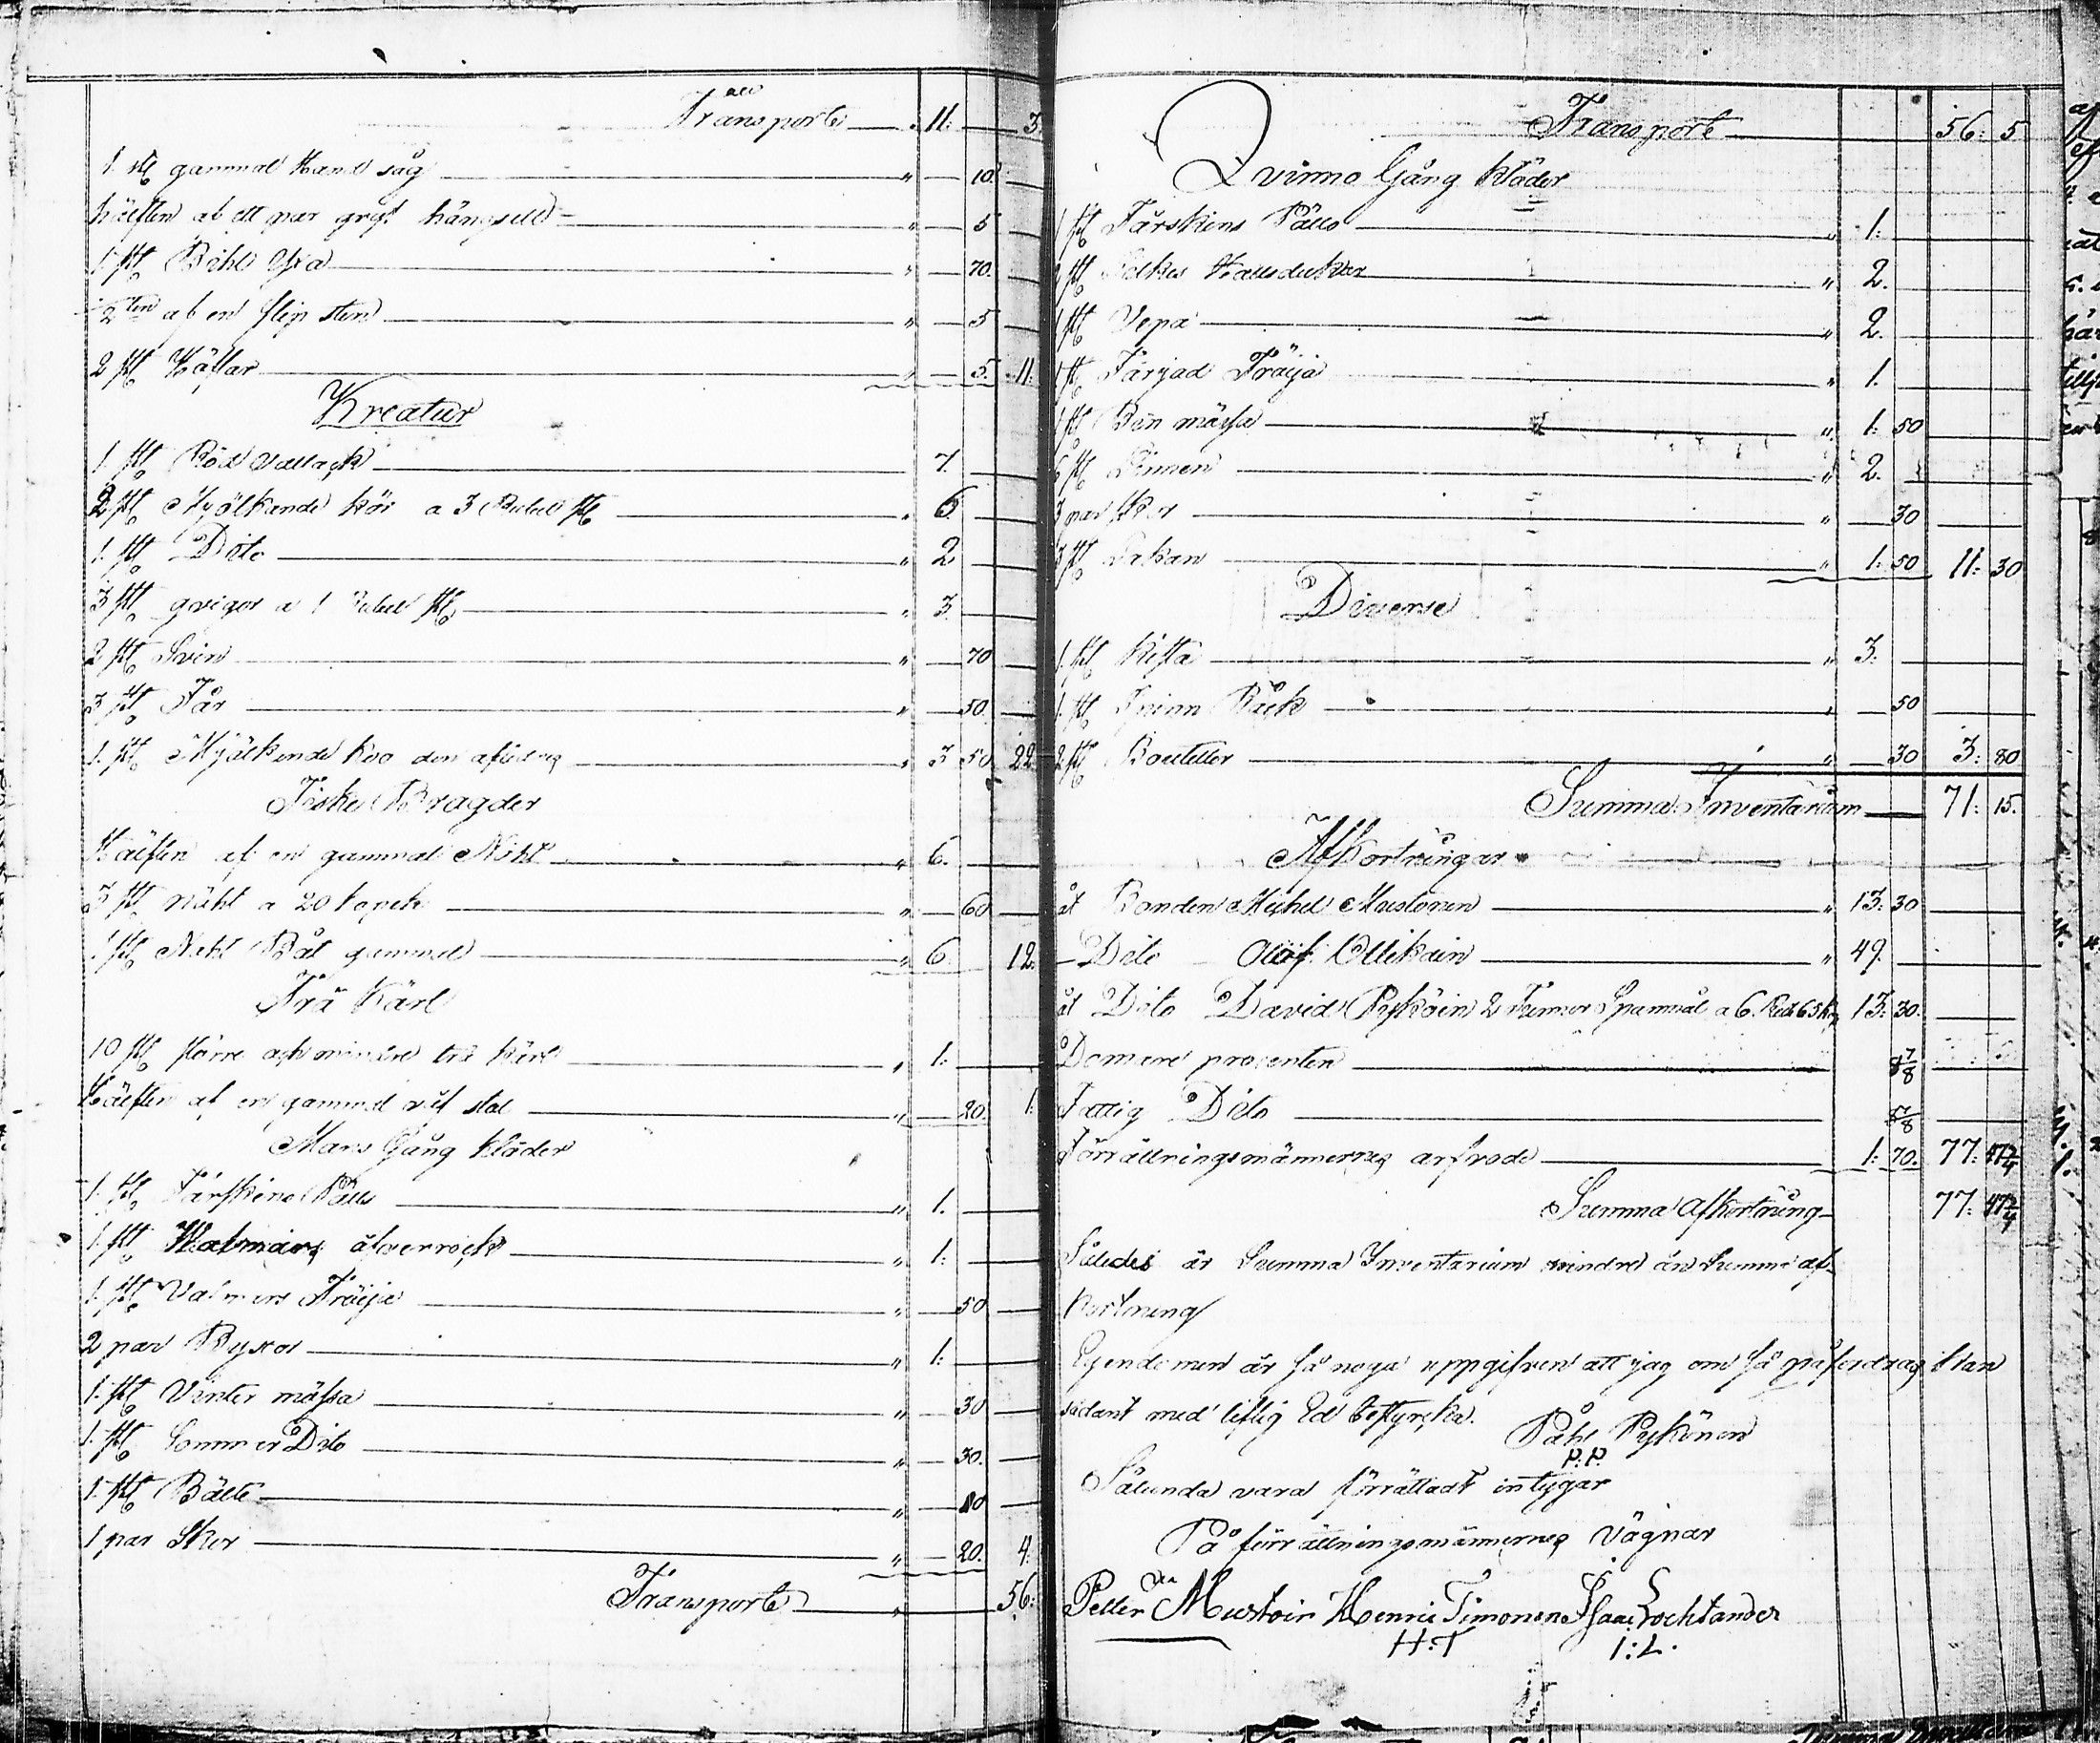 Transporte 11: 3
1 st gammal Hand såg " 10.
hälften af ett par hängsell " 5
1 st Bihl Yxa " 70.
½ten af en slip sten " 5
2 st Häflar " 5. 11.
Kreatur
1 st Röd Vallack 7.
2 st Mjölkande kor a 3 Rubel st " 6
1 st Dito " 2
3 st qvigor a 1 Rubel st " 3
2 st Svin " 70
3 st Får " 50.
1 st Mjölkande Koo den " 3 50 22
Fiske Bragder
Hälften af en gammal Noht " 6.
3 st näht a 20 kopek " 60
1 st Noht Båt gammal " 6. 12.
Trä Kärl
10 st större och mindre trä kärl " 1:
Hälften af en gammal stol " 20. 1:
Mans Gång kläder
1 st Fårskins Pälls " 1.
1 st Walmars öfverrock " 1:
1 st Valmars Tröija " 50
2 par Byxor " 1:
1 st Vinter mössa " 30
1 st Sommer Dito " 30.
1 st Bälte " 10
1 par Skor " 20. 4:
Transporte " 56:
Transporte 56: 5
Qvinno Gång kläder
1 st Fårskins Pälls " 1:
st Silkes Hallsdukar " 2.
1 st Vepa " 2.
1 st Färjad Tröija " 1.
1 st Bön mössa " 1: 50
6 st Linnen " 2.
3 par skor " 30
3 st Lakan " 1: 50 11: 30
Diverse
1 st Kista " 3:
1 st Båck " 50
2 st Bouteller " 30 3: 80
Summa Inventarium 71: 15.
Afkortningar
åt Bonden Michel Mustonen " 13: 30
Dito Olof Ollikain " 49.
åt Dito David Pyköin 2 Tunnor Spannmål a 6. Rub 65 k 13: 30.
Domare procenten 8 7/8
Fattig Dito 8 7/8
Förrättningsmännernes arfvode 1: 70. 77: 47 3/4
Summa Afkortning 77: 47 3/4
Således är Summa Inventarium mindre än Summa af-
kortning
Egendomen är så noga uppgifven att jag om så påfordras kan
sådant med liflig Ed bestyrcka. Påhl Pykönen
P.P.
Sålunda vara förrättadt intygar
På förrättningsmännernes Vägnar
Petter Mustoin Henric Timonen Isaac Lochtander
H:T I:L.